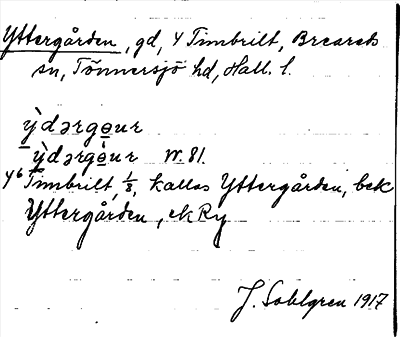 Yttergården, gd, 4 Timbrilt, Breareds
sn, Tönnersjö hd, Hall. l.
ỳdərgɵur
ỳdərgɵ̀ur W. 81.
4⁶ Timbrilt, 1/8, kallas Yttergården, bek
Yttergården, ekRy
J. Sahlgren 1917